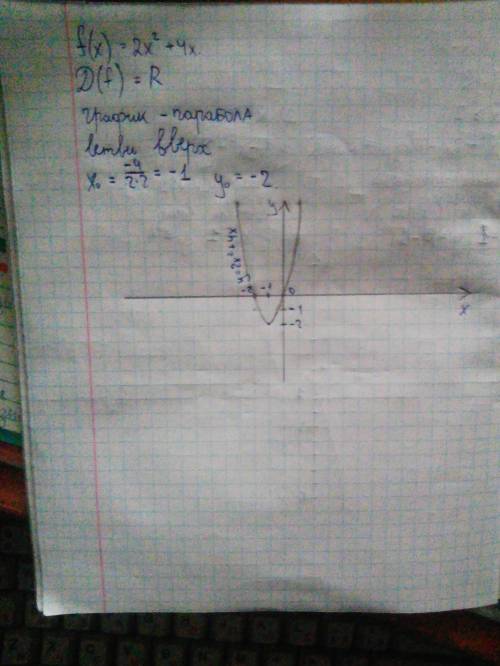 f(x) = 2x² + 4x
D(f) = R
график - парабола
ветви вверх
x₀ = -4/2·2 = -1 y₀ = -2
y
y=2x²+4x
-2 -1 0
x
-1
-2